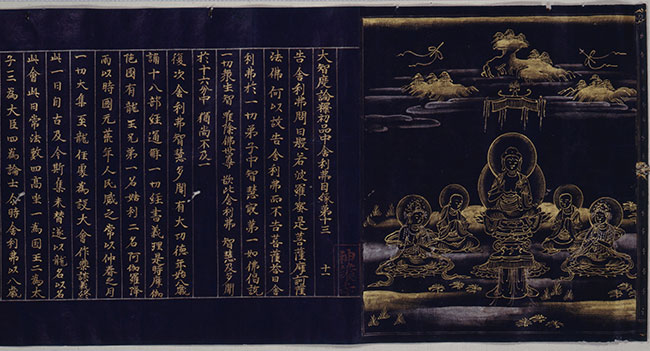 大智度論釋初品中舍利弗因緣第十三 十一
告舍利弗問曰般若波羅蜜是菩薩摩訶薩
法佛何以故告舍利弗而不告菩薩答曰舍
利弗於一切弟子中智慧最第一如佛偈說
一切眾生智 唯除佛世尊 欲比舍利弗 智慧及多聞
於十六分中 猶尚不及一
復次舍利弗智慧多聞有大功德年始八歲
誦十八部經通解一切經書義理是時摩伽
陀國有龍王兄弟一名姞利二名阿伽羅降
雨以時國无荒年人民感之常以仲春之月
一切大集至龍住處為設大會作樂談義終
此一日自古及今斯集未替遂以龍名以名
此會此日常法敷四高坐一為國王二為太
子三為大臣四為論士尒時舍利弗以八歲